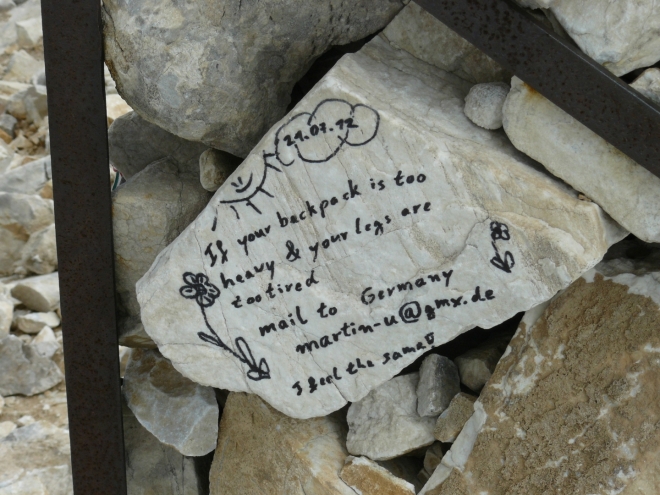 21.07.12
If your backpack is too
heavy & your legs are
too tired
mail to Germany
martin-u@gmx.de
I feel the same